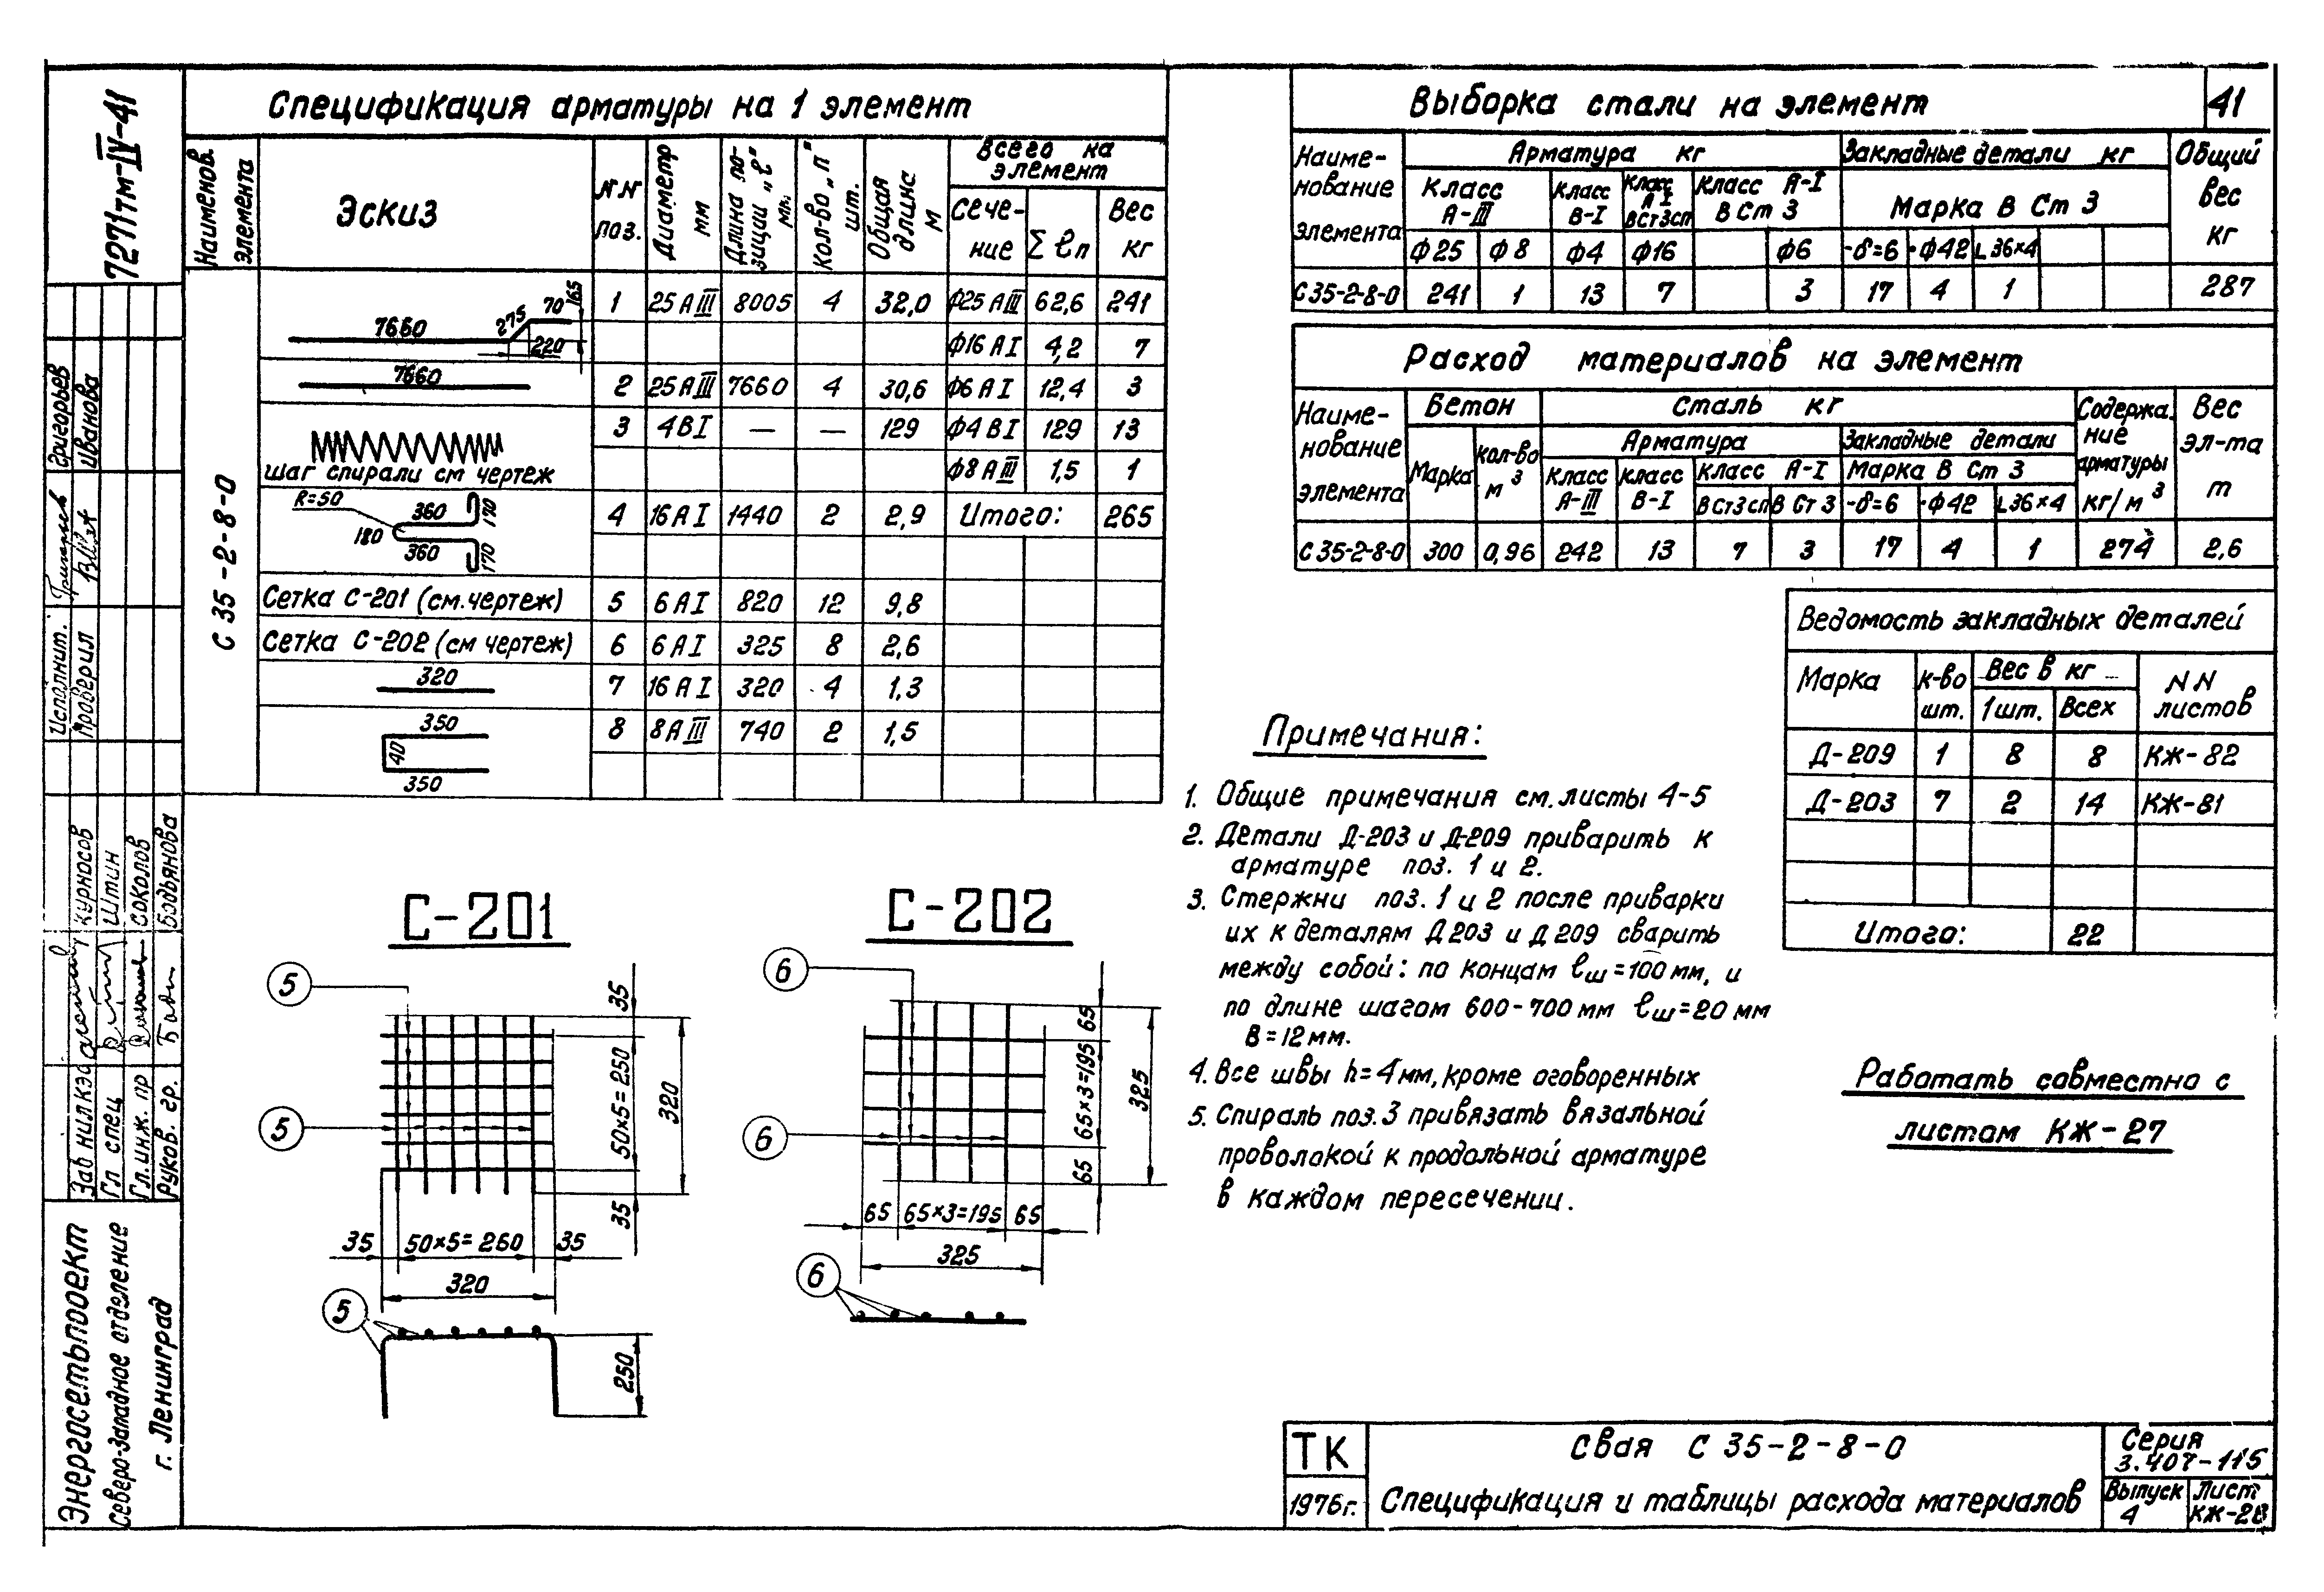 7271тм-IV-41
Спецификация арматуры на 1 элемент
Наименов. элемента
Эскиз
NN поз.
Диаметр мм
Длина позиции „ℓ" мм.
Кол-во „п" шт.
Общая длина м
Всего на элемент
Сечение
Σℓп
Вес кг
С 35-2-8-0
7660 275 70 165 220
1 25 АIII 8005 4 32,0 Ф25 АIII 62,6 241
Ф16 АI 4,2 7
7660
2 25 АIII 7660 4 30,6 Ф6 АI 12,4 3
3 4ВI — — 129 Ф4 ВI 129 13
шаг спирали см чертеж
Ф8 АIII 1,5 1
R=50 360 170 180 360 170
4 16 АI 1440 2 2,9 Итого: 265
Сетка С-201 (см.чертеж) 5 6 АI 820 12 9,8
Сетка С-202 (см чертеж) 6 6 АI 325 8 2,6
320
7 16 АI 320 4 1,3
350
40
350
8 8 АIII 740 2 1,5
Выборка стали на элемент
41
Наименование элемента
Арматура кг
Закладные детали кг
Общий вес кг
Класс А-III
Класс В-I
Класс А I ВСт3сп
Класс А-I В Ст 3
Марка В Ст 3
Ф25 Ф8 Ф4 Ф16 Ф6 -δ=6 •Ф42 L36×4
С35-2-8-0 241 1 13 7 3 17 4 1 287
Расход материалов на элемент
Наименование элемента
Бетон
Сталь кг
Содержание арматуры кг/м3
Вес эл-та т
Марка
Кол-во м3
Арматура
Закладные детали
Класс А-III
Класс В-I
Класс А-I
Марка В Ст 3
ВСт3сп В Ст 3 -δ=6 •Ф42 L36×4
С35-2-8-0 300 0,96 242 13 7 3 17 4 1 274 2,6
Ведомость закладных деталей
Марка
к-во шт.
Вес в кг
1шт. Всех
NN листов
Д-209 1 8 8 КЖ-82
Д-203 7 2 14 КЖ-81
Итого: 22
Примечания:
1. Общие примечания см.листы 4-5
2. Детали Д-203 и Д-209 приварить к
арматуре поз. 1 и 2.
3. Стержни поз. 1 и 2 после приварки
их к деталям Д203 и Д209 сварить
между собой: по концам ℓш=100мм, и
по длине шагом 600-700мм ℓш=20мм
В=12мм.
4. Все швы h=4мм,кроме оговоренных
5. Спираль поз.3 привязать вязальной
проволокой к продольной арматуре
в каждом пересечении.
Работать совместно с
листам КЖ-27
С-201
5
5
35
50×5=250
320
35
35 50×5=260 35
320
5
250
С-202
6
6
65
65×3=195
325
65
65 65×3=195 65
325
6
Григорьев
Иванова
Исполнит.
Проверил
Курносов
Штин
Соколов
Бодьянова
Зав НИЛКЭС
Гл спец
Гл.инж. пр
Руков. гр.
Энергосетьпроект
Северо-Западное отделение
г. Ленинград
ТК
1976г.
Свая С 35-2-8-0
Спецификация и таблицы расхода материалов
Серия
3.407-115
Выпуск
4
Лист
КЖ-28